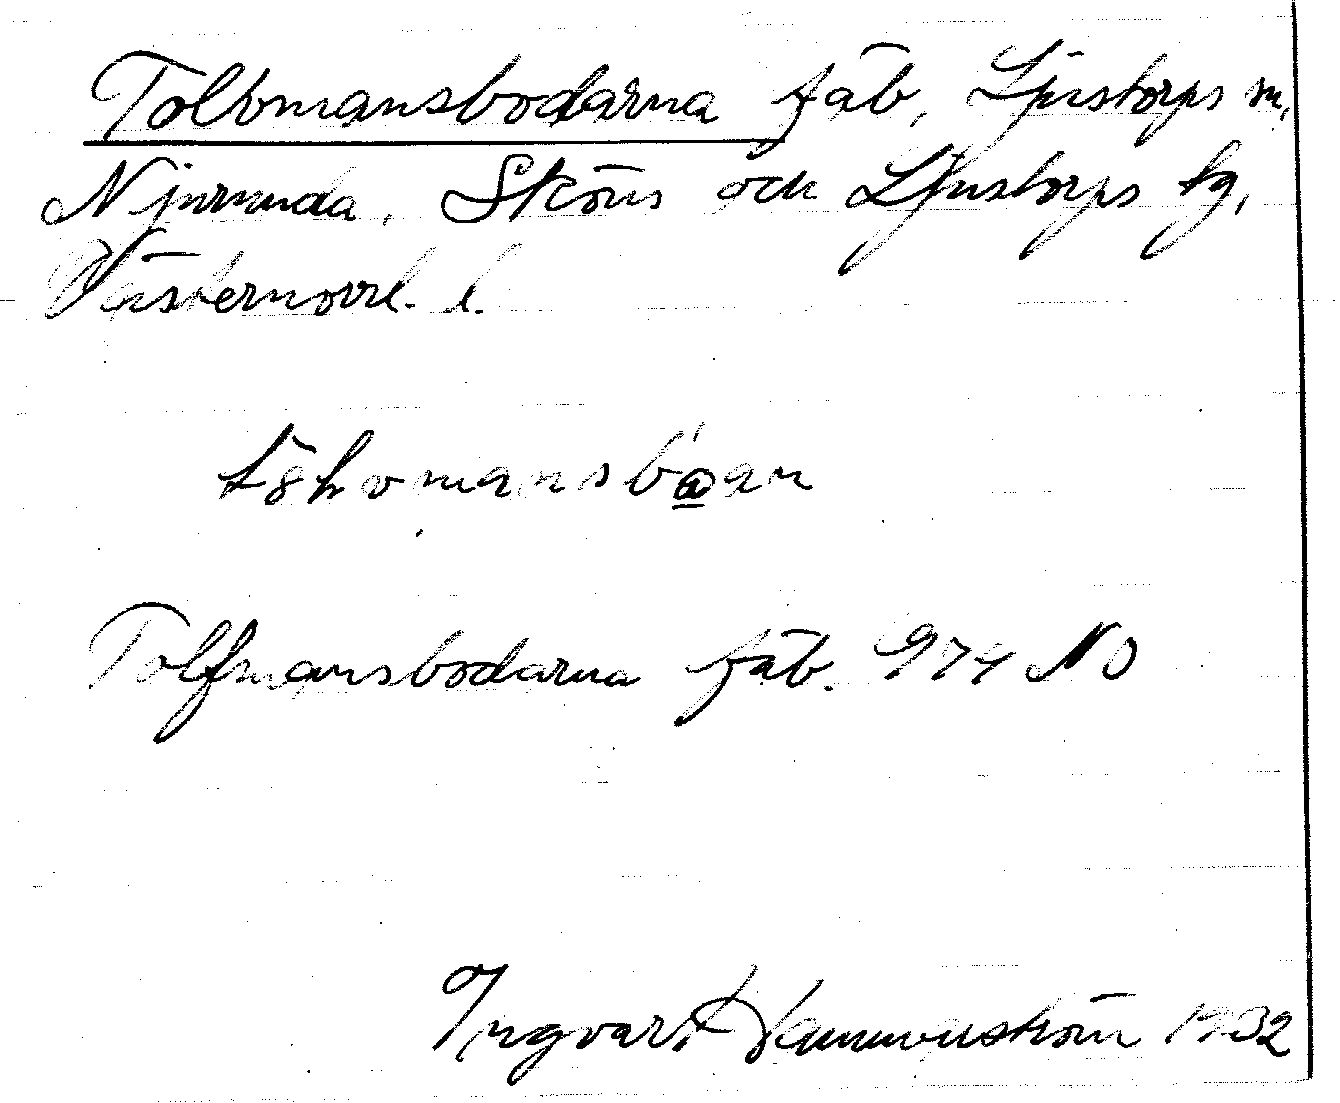 Tolvmansbodarna fäb, Ljustorps sn,
Njurunda, Sköns och Ljustorps tg,
Västernorrl. l.
Tolfmansbodarna fäb. 974 NO
Ingvar Hammarström 1932